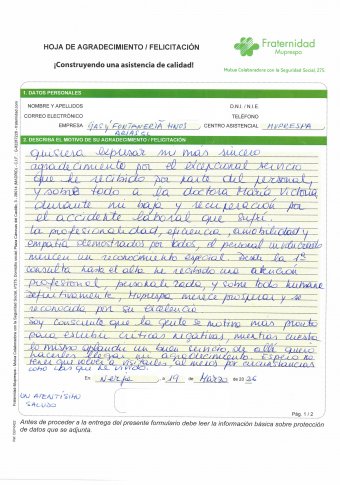 HOJA DE AGRADECIMIENTO / FELICITACIÓN
¡Construyendo una asistencia de calidad!
Fraternidad
Muprespa
Mutua Colaboradora con la Seguridad Social 275
1. DATOS PERSONALES
NOMBRE Y APELLIDOS
D.N.I. / N.I.E
CORREO ELECTRÓNICO
TELEFONO
EMPRESA GAS Y FONTANERÍA HNOS
CENTRO ASISTENCIAL MUPRESPA
2. DESCRIBA EL MOTIVO DE SU AGRADECIMIENTO / FELICITACIÓN
Quisiera expresar mi más sincero
agradecimiento por el excepcional servicio
que he recibido por parte del personal,
y sobre todo a la doctora María Victoria
durante mi baja y recuperación por
el accidente laboral que sufrí.
La profesionalidad, eficiencia, amabilidad y
empatía demostrados por todos, el personal involucrado
merecen un reconocimiento especial. Desde la 1ª
consulta hasta el alta he recibido una atención
profesional, personalizada, y sobre todo humana
Definitivamente, Muprespa merece prosperar y se
reconocida por su excelencia
Soy consciente que la gente se motiva más pronto
para escribir críticas negativas, mientras cuesta
lo mismo aplaudir un buen servicio, de allí quiero
hacerles llegar mi agradecimiento. Espero no
tener que volver a visitarles, al menos por circunstancias
como las que he vivido.
En Nerja a 19 de Marzo de 2026
UN ATENTISIMO
SALUDO
Pág. 1 / 2
Antes de proceder a la entrega del presente formulario debe leer la información básica sobre protección
de datos que se adjunta.